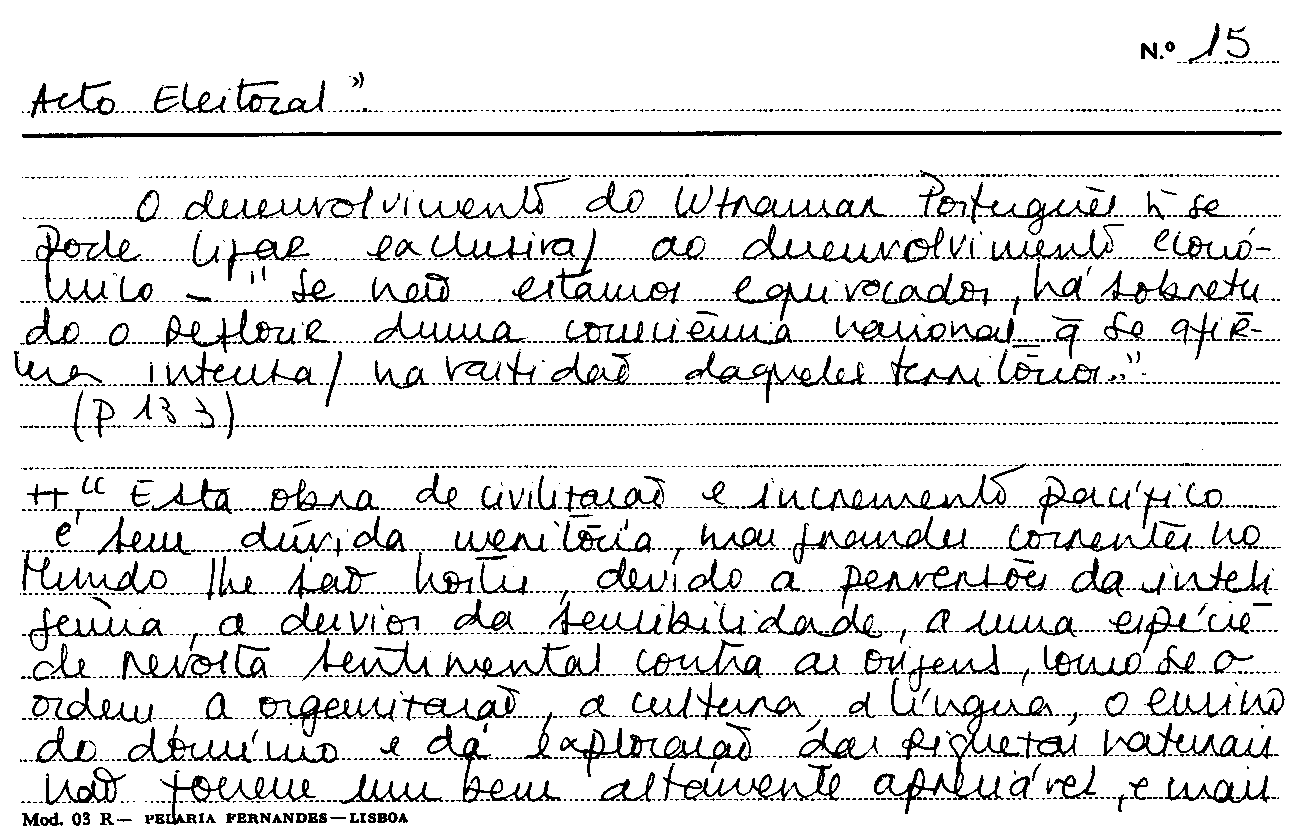 N.º 15
Acto Eleitoral".
O desenvolvimento do Ultramar Português ñ se
pode ligar exclusiva/ ao desenvolvimento econó-
mico – "Se não estamos equivocados, há sobretu
do o reflorir duma consciência nacional q̄ se afir-
ma intensa/ na vastidão daqueles territórios."
(p 133)
"Esta obra de civilização e incremento pacífico
é sem dúvida meritória, mas grandes correntes no
Mundo lhe são hostis, devido a perversões da inteli
gência, a desvios da sensibilidade, a uma espécie
de revolta sentimental contra as origens, como se a
ordem, a organização, a cultura, a língua, o ensino
do domínio e da exploração das riquezas naturais
não fossem um bem altamente apreciável, e mais
Mod. 03 R — PELARIA FERNANDES — LISBOA